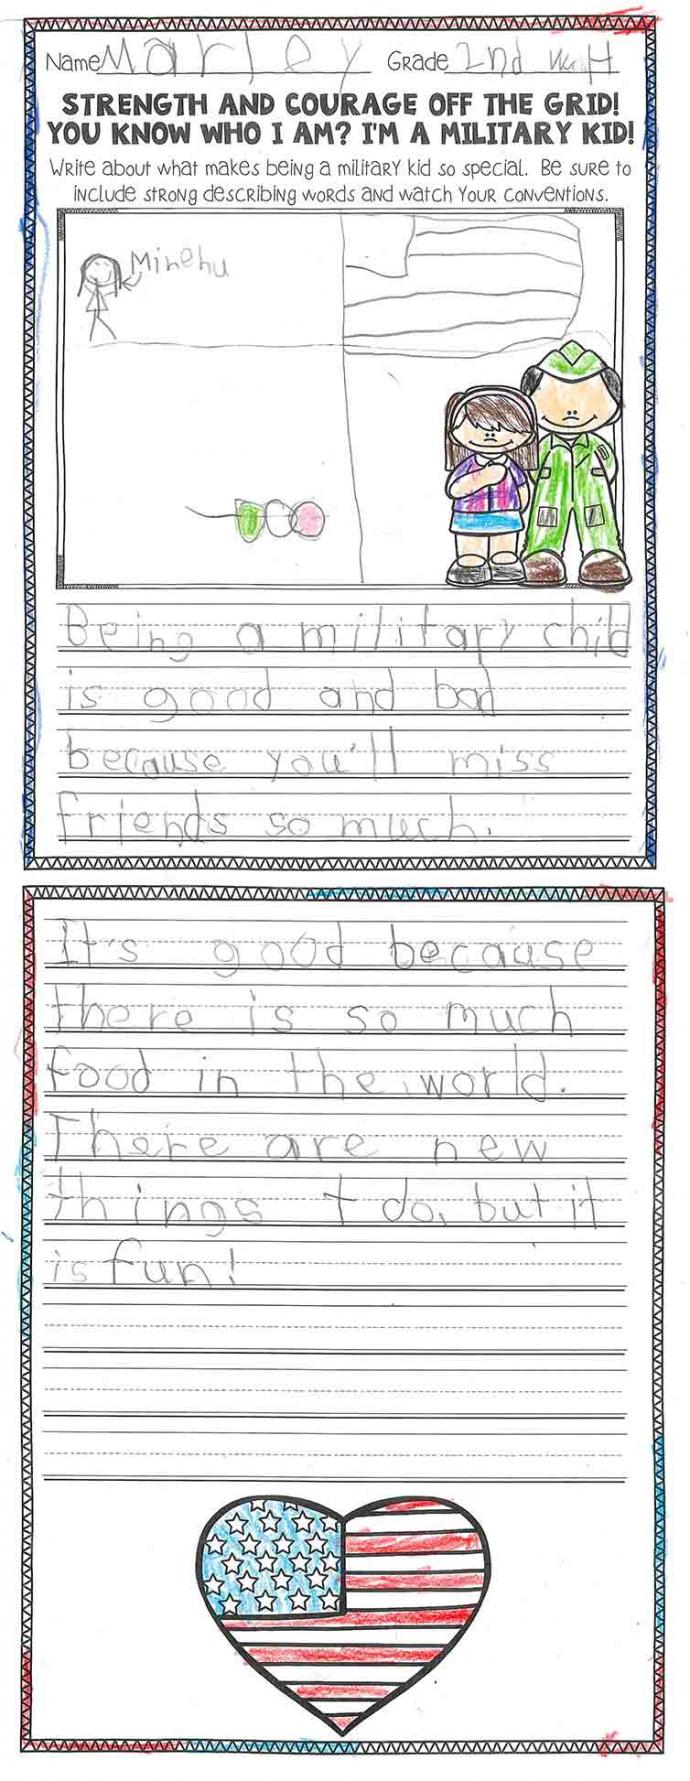 Name Marley Grade 2nd
STRENGTH AND COURAGE OFF THE GRID!
YOU KNOW WHO I AM? I'M A MILITARY KID!
Write about what makes being a military kid so special. Be sure to
include strong describing words and watch your conventions.
Minehu
Being a military child
is good and bad
because you'll miss
friends so much.
It's good because
there is so much
food in the world.
There are new
things I do, but it
is fun!